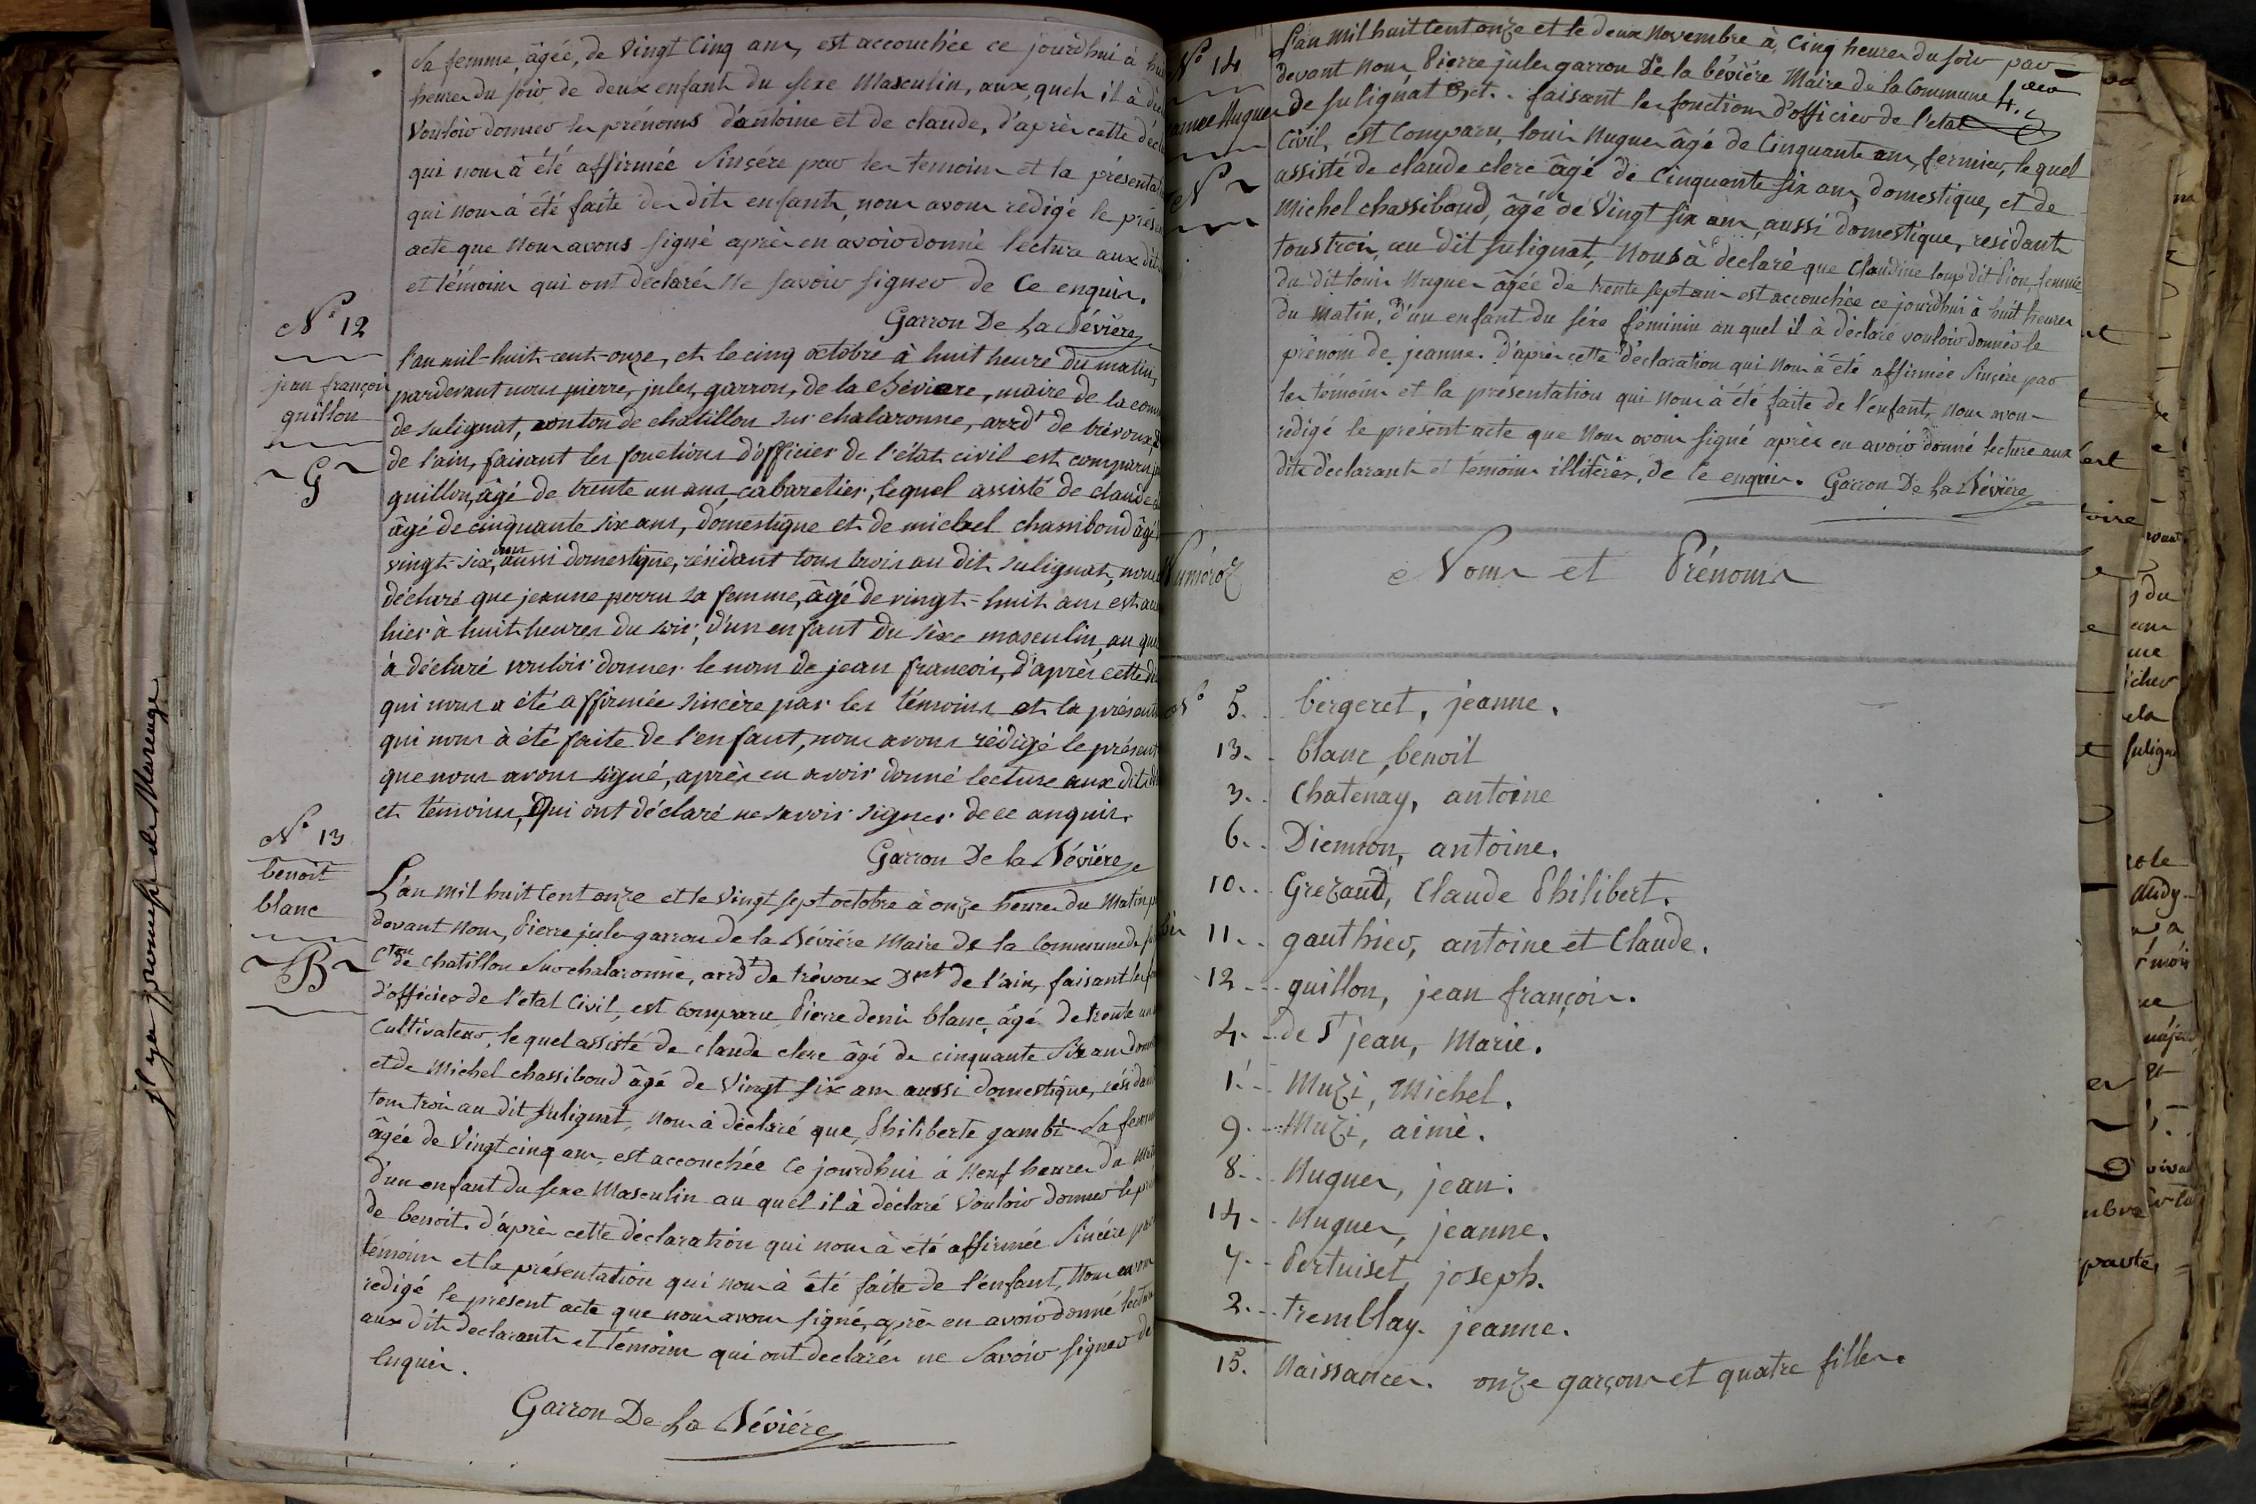 Sa femme, âgée, de Vingt Cinq ans, est accouchée ce jourd'hui à
heures du soir de deux enfants du sexe Masculin, aux quels il à
Vouloir donner les prénoms d'antoine et de claude, d'après cette
qui nous à été affirmée Sinçére par les temoins et la
qui nous à été faite des dits enfants, nous avons redigé le
acte que nous avons signé après en avoir donné lectura aux
et témoins qui ont déclarés Ne savoir signer de Ce enquis.
Garron De La Bévière
N° 12
jean françois
guillon
G
l'an mil-huit-cent-onze, et le cinq octobre à huit heure du matin,
pardevant nous pierre, jules, garron, de la Bévière, maire de la
de sulignat, conton de chatillon sur chalaronne, arrdt de trévoux,
de l'ain, faisant les fonctions d'officier de l'état civil est comparu
guillon, âgé de trente un ans, cabaretier, lequel assisté de claude
âgé de cinquante six ans, domestique et de michel chassiboud âgé
vingt-six, ans aussi domestique, résidant tous trois au dit sulignat, nous
déclaré que jeanne perru sa femme, âgé de vingt-huit ans est
hier à huit heures du soir, d'un enfant du sèxe masculin, au
à déclaré vouloir donner le nom de jean francois, d'après cette
qui nous a été affirmée sincère par les témoins et la
qui nous à été faite de l'enfant, nous avons rédigé le présent
que nous avons signé, après en avoir donné lecture aux dits
et témoins, Qui ont déclaré ne savoir signer de ce anquis.
Garron De la Bévière
N° 13
benoit
blanc
B
L'an mil huit Cent onze et le Vingt sept octobre à onze heures du Matin
devant Nous, Pierre jules garron de la Bévière Maire de la Commune de
Cton de chatillon Sur chalaronne, arrdt de trévoux Dent de l'ain, faisant les
d'officier de l'etat Civil, est comparu Pierre denis blanc âgé de trente
Cultivateur, lequel assisté de claude clerc âgé de cinquante Six ans
et de Michel chassiboud âgé de Vingt six ans aussi domestique,
tous trois au dit sulignat, Nous à déclaré que Philiberte gambi Sa
âgée de Vingt cinq ans, est accouchée Ce jourd'hui à Neuf heures du
d'un enfant du sexe Masculin au quel il à déclaré Vouloir donner le
de benoit. d'après cette déclaration qui nous à été affirmée Sincère
témoins et la présentation qui nous à été faite de l'enfant, Nous avons
redigé le present acte que nous avons signé, après en avoir donné
aux dits declarants et témoins qui ont declarés ne Savoir signer de
Enquis.
Garron De La Bévière
jl y a promesse de Mariage
N° 14
jeanne Nugues
N
L'an Mil huit Cent onze et le deux Novembre à, Cinq heures du soir par
devant Nous Pierre jules garron De la bévière Maire de la Commune
de sulignat &ct. faisant les fonctions d'officier de l'etat
Civil, est Comparu, louis Nugues âgé de Cinquante ans, fermier, le quel
assisté de claude clerc âgé de Cinquante six ans, domestique, et de
Michel chassiboud, âgé de Vingt six ans, aussi domestique, residants
tous trois, au dit sulignat, Nous à déclaré que Claudine loup dit lion, femme
du dit louis Nugues âgée de trente sept ans est accouchée ce jourd'hui à huit heures
du Matin, d'un enfant du séxe féminin au quel il à déclaré vouloir donner le
prénom de jeanne. D'après cette déclaration qui Nous à été affirmée Sinçère par
les témoins et la présentation qui Nous à été faite de l'enfant, Nous avons
redigé le présent acte que Nous avons signé après en avoir donné lecture aux
dits déclarants et témoins illitérés, de Ce enquis. Garron De La Bévière
Numéros
Noms et Prénoms
N° 5. bergeret, jeanne.
13. blanc, benoit
3. Chatenay, antoine
6. Diennon, antoine.
10. Grezaud, Claude Philibert.
11. gauthier, antoine et Claude.
12. guillon, jean françois.
4. de St jean, Marie.
1. Muzi, Michel.
9. Muzi, aimé.
8. Nugues, jean.
14. Nugues, jeanne.
7. Pertuiset, joseph.
2. tremblay. jeanne.
15. Naissances. onze garçons et quatre filles.